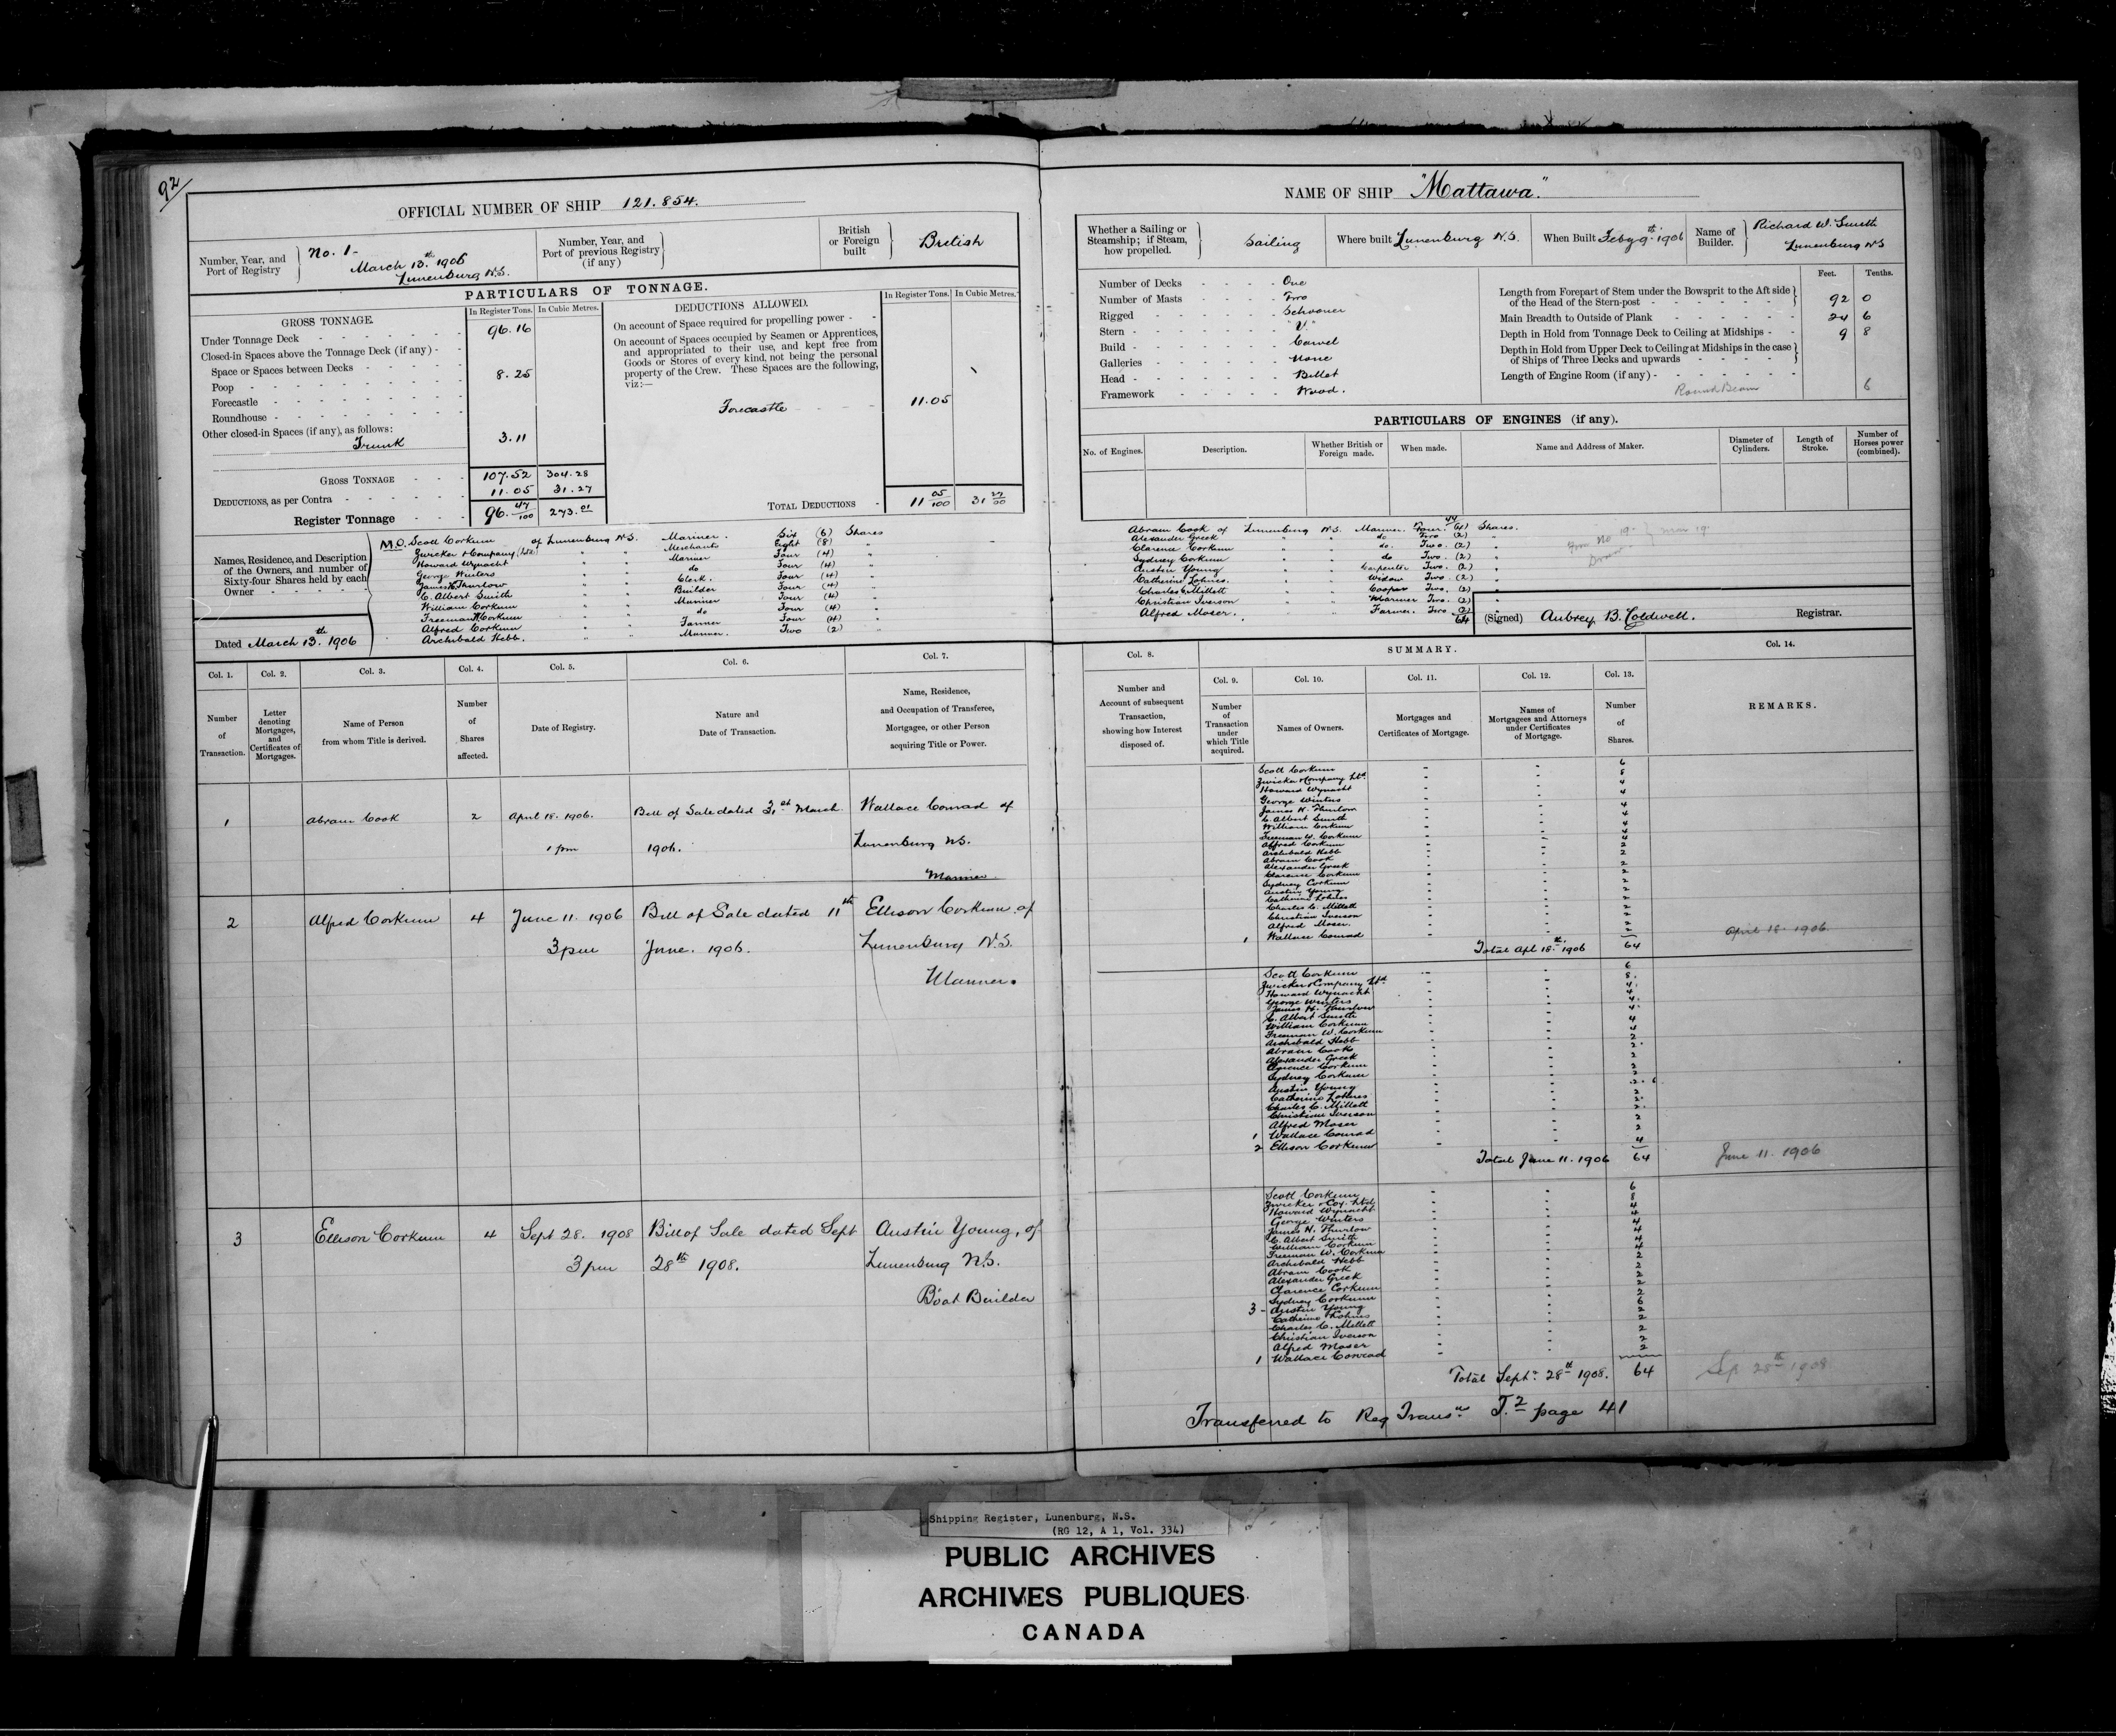 92/
OFFICIAL NUMBER OF SHIP 121.854.
Number, Year, and Port of Registry
No. 1-
March 13th 1906
Lunenburg N.S.
Number, Year, and Port of previous Registry (if any)
British or Foreign built
British
PARTICULARS OF TONNAGE.
GROSS TONNAGE.
In Register Tons. In Cubic Metres.
Under Tonnage Deck 96.16
Closed-in Spaces above the Tonnage Deck (if any) -
Space or Spaces between Decks
Poop 8.25
Forecastle
Roundhouse
Other closed-in Spaces (if any), as follows:
Trunk 3.11
GROSS TONNAGE 107.52 304.28
DEDUCTIONS, as per Contra 11.05 31.27
Register Tonnage 96.47/100 273.01
DEDUCTIONS ALLOWED.
In Register Tons. In Cubic Metres.
On account of Space required for propelling power -
On account of Spaces occupied by Seamen or Apprentices,
and appropriated to their use, and kept free from
Goods or Stores of every kind, not being the personal
property of the Crew. These Spaces are the following,
viz:—
Forecastle 11.05
TOTAL DEDUCTIONS 11 05/100 31 27/00
Names, Residence, and Description
of the Owners, and number of
Sixty-four Shares held by each
Owner
M.O. Scott Corkum of Lunenburg N.S. Mariner. Six (6) Shares
Zwicker & Company Ltd. " " Merchants Eight (8) "
Howard Wynacht " " Mariner Four (4) "
George Winters " " do Four (4) "
James H. Thurlow " " Clerk. Four (4) "
C. Albert Smith " " Builder Four (4) "
William Corkum " " Mariner Four (4) "
Freeman W. Corkum " " do Four (4) "
Alfred Corkum " " Farmer Four (4) "
Archibald Hebb. " " Mariner. Two (2) "
Dated March 13th 1906
NAME OF SHIP "Mattawa."
Whether a Sailing or Steamship; if Steam, how propelled.
Sailing
Where built Lunenburg N.S.
When Built Feby 9th 1906
Name of Builder.
Richard W. Smith
Lunenburg NS
Number of Decks One
Number of Masts Two
Rigged Schooner
Stern "V."
Build Carvel
Galleries None
Head Billet
Framework Wood.
Feet. Tenths.
Length from Forepart of Stem under the Bowsprit to the Aft side
of the Head of the Stern-post 92 0
Main Breadth to Outside of Plank 24 6
Depth in Hold from Tonnage Deck to Ceiling at Midships 9 8
Depth in Hold from Upper Deck to Ceiling at Midships in the case
of Ships of Three Decks and upwards
Length of Engine Room (if any)
Round Beam 6
PARTICULARS OF ENGINES (if any).
No. of Engines. Description. Whether British or Foreign made. When made. Name and Address of Maker. Diameter of Cylinders. Length of Stroke. Number of Horses power (combined).
44
Abram Cook of Lunenburg N.S. Mariner. Four. (4) Shares.
Alexander Greek " " do Two (2) "
Clarence Corkum " " do. Two. (2) "
Sydney Corkum " " do Two. (2) "
Austin Young " " Carpenter Two. (2) "
Catherine Lohnes. " " Widow Two. (2) "
Charles C. Millett " " Cooper Two. (2) "
Christian Iverson " " Mariner Two. (2) "
Alfred Moser. " " Farmer. Two (2)
64
(Signed) Aubrey B. Coldwell. Registrar.
Col. 1. Col. 2. Col. 3. Col. 4. Col. 5. Col. 6. Col. 7.
Number of Transaction.
Letter denoting Mortgages, and Certificates of Mortgages.
Name of Person from whom Title is derived.
Number of Shares affected.
Date of Registry.
Nature and Date of Transaction.
Name, Residence, and Occupation of Transferee, Mortgagee, or other Person acquiring Title or Power.
1 Abram Cook 2 April 18. 1906. Bill of Sale dated 31st March Wallace Conrad of
1 pm 1906. Lunenburg NS.
Mariner
2 Alfred Corkum 4 June 11. 1906 Bill of Sale dated 11th Ellison Corkum of
3 pm June. 1906. Lunenburg N.S.
Mariner.
3 Ellison Corkum 4 Sept 28. 1908 Bill of Sale dated Sept Austin Young, of
3 pm 28th 1908. Lunenburg N.S.
Boat Builder
SUMMARY.
Col. 8. Col. 9. Col. 10. Col. 11. Col. 12. Col. 13. Col. 14.
Number and Account of subsequent Transaction, showing how Interest disposed of.
Number of Transaction under which Title acquired.
Names of Owners.
Mortgages and Certificates of Mortgage.
Names of Mortgagees and Attorneys under Certificates of Mortgage.
Number of Shares.
REMARKS.
Scott Corkum - - 6
Zwicker & Company Ltd. - - 8
Howard Wynacht - - 4
George Winters - - 4
James H. Thurlow - - 4
C. Albert Smith - - 4
William Corkum - - 4
Freeman W. Corkum - - 4
Alfred Corkum - - 4
Archibald Hebb - - 2
Abram Cook - - 2
Alexander Greek - - 2
Clarence Corkum - - 2
Sydney Corkum - - 2
Austin Young - - 2
Catherine Lohnes - - 2
Charles C. Millett - - 2
Christian Iverson - - 2
Alfred Moser. - - 2
1 Wallace Conrad - - 2
Total Apl 18th 1906 64
April 18. 1906
Scott Corkum - - 6
Zwicker & Company Ltd. - - 8
Howard Wynacht - - 4
George Winters - - 4
James H. Thurlow - - 4
C. Albert Smith - - 4
William Corkum - - 4
Freeman W. Corkum - - 4
Archibald Hebb - - 2
Abram Cook - - 2
Alexander Greek - - 2
Clarence Corkum - - 2
Sydney Corkum - - 2
Austin Young - - 2
Catherine Lohnes - - 2
Charles C. Millett - - 2
Christian Iverson - - 2
Alfred Moser - - 2
1 Wallace Conrad - - 2
2 Ellison Corkum - - 4
Total June 11. 1906 64
June 11. 1906
Scott Corkum - - 6
Zwicker & Coy. Ltd - - 8
Howard Wynacht - - 4
George Winters - - 4
James H. Thurlow - - 4
C. Albert Smith - - 4
William Corkum - - 4
Freeman W. Corkum - - 4
Archibald Hebb - - 2
Abram Cook - - 2
Alexander Greek - - 2
Clarence Corkum - - 2
Sydney Corkum - - 2
3 - Austin Young - - 6
Catherine Lohnes - - 2
Charles C. Millett - - 2
Christian Iverson - - 2
Alfred Moser - - 2
1 Wallace Conrad - - 2
Total Septr 28th 1908. 64
Sep 28th 1908
Transferred to Reg Transns T.2 page 41
Shipping Register, Lunenburg, N.S.
(RG 12, A 1, Vol. 334)
PUBLIC ARCHIVES
ARCHIVES PUBLIQUES
CANADA